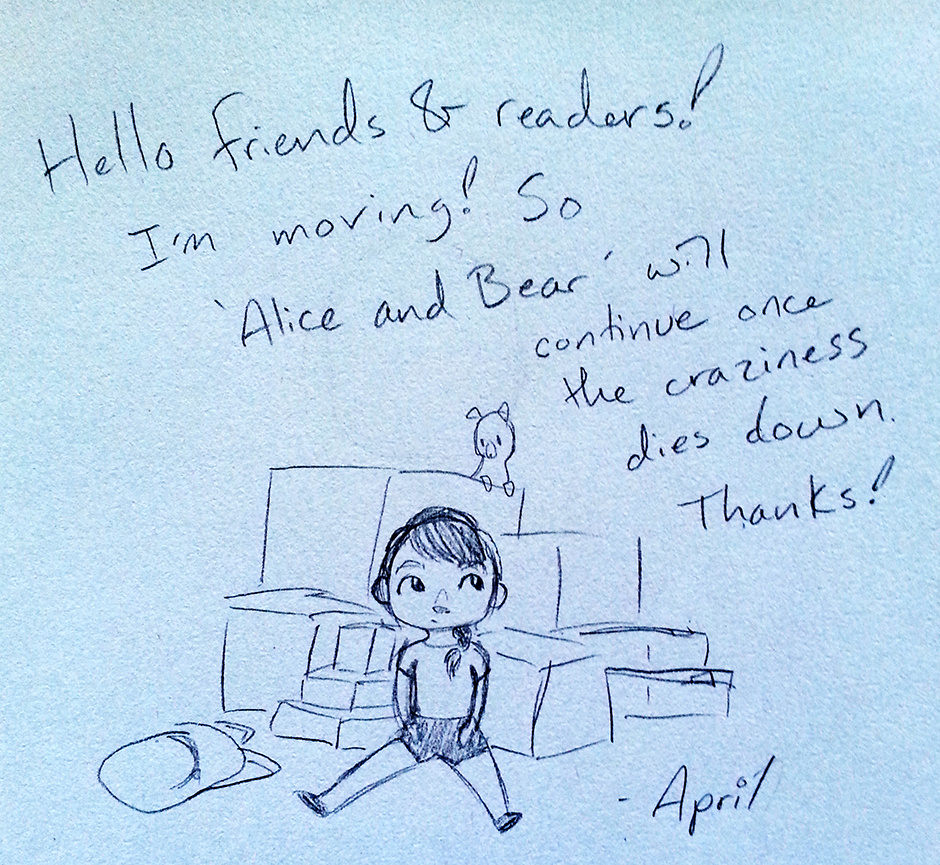 Hello friends & readers!
I'm moving! So
'Alice and Bear' will
continue once
the craziness
dies down.
Thanks!
- April